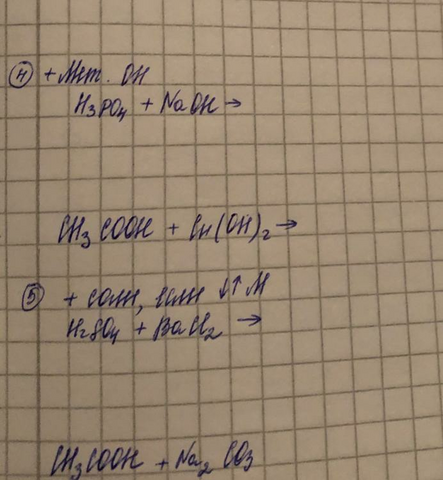 ④ + Мет. OH
H₃PO₄ + NaOH →
CH₃COOH + Cu(OH)₂ →
⑤ + соли, если ↓↑ М
H₂SO₄ + BaCl₂ →
CH₃COOH + Na₂CO₃